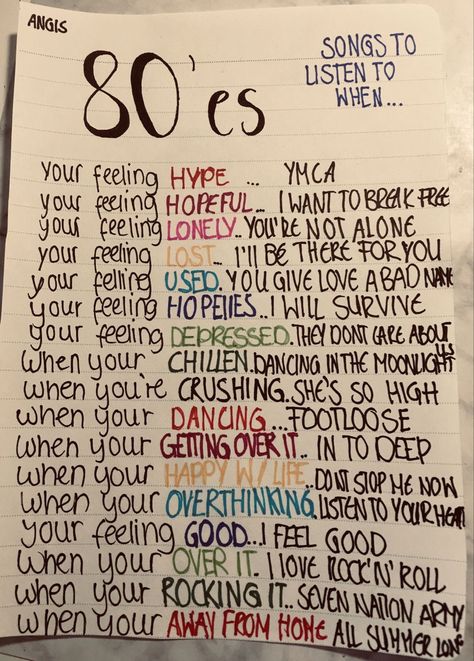 ANGIS
80'es
SONGS TO
LISTEN TO
WHEN...
your feeling HYPE ... YMCA
your feeling HOPEFUL... I WANT TO BREAK FREE
your feeling LONELY.. YOU'RE NOT ALONE
your feeling LOST... I'll BE THERE FOR YOU
your felling USED. YOU GIVE LOVE A BAD NAME
your feeling HOPElES.. I WILL SURVIVE
your feeling DEPRESSED. THEY DONT CARE ABOUT US
when your CHILLEN. DANCING IN THE MOONLIGHT
when you're CRUSHING. SHE'S SO HIGH
when your DANCING ...FOOTLOOSE
when your GETTING OVER IT.. IN TO DEEP
when your HAPPY W/ LIFE..DONT STOP ME NOW
when your OVERTHINKING. LISTEN TO YOUR HEART
your feeling GOOD...I FEEL GOOD
when your OVER IT. I LOVE ROCK'N' ROLL
when your ROCKING IT.. SEVEN NATION ARMY
when your AWAY FROM HOME ALL SUMMER LONG